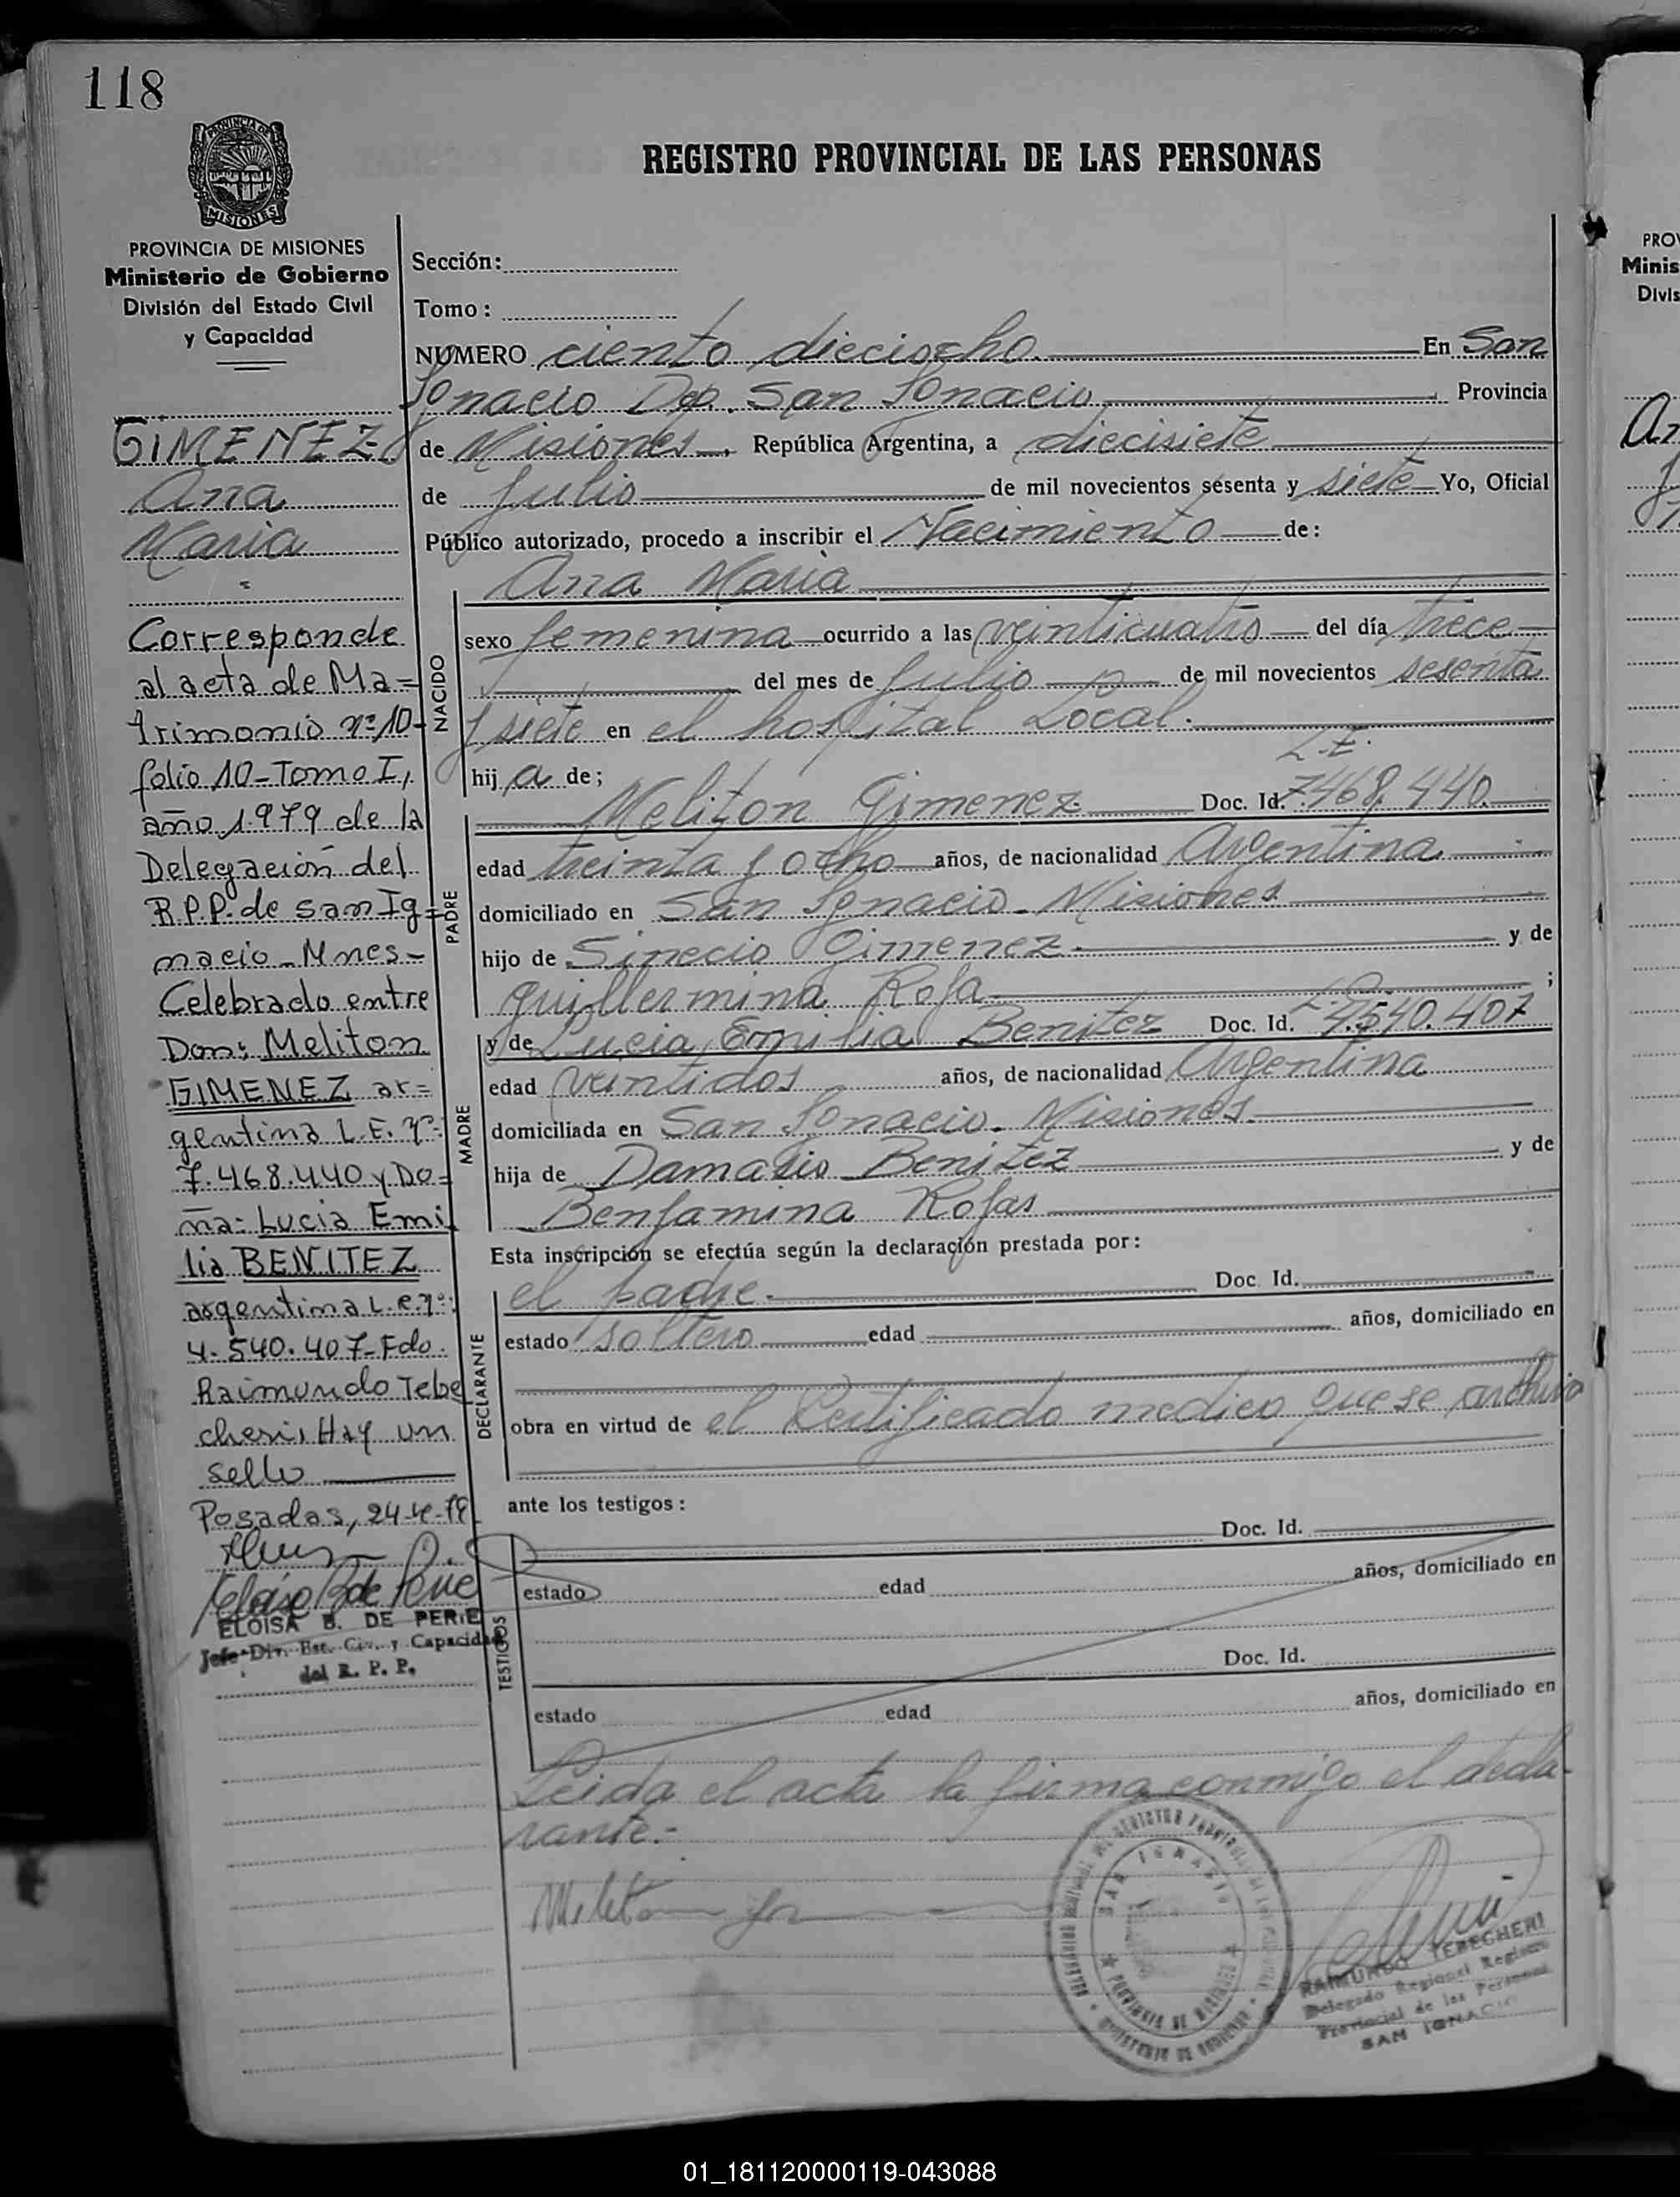 118
REGISTRO PROVINCIAL DE LAS PERSONAS
PROVINCIA DE
MISIONES
PROVINCIA DE MISIONES
Ministerio de Gobierno
División del Estado Civil
y Capacidad
GIMENEZ
Ana
Maria
Corresponde
al acta de Ma=
trimonio nº 10-
folio 10-Tomo I,
año 1.979 de la
Delegación del
R.P.P. de San Ig=
nacio-Mnes-
Celebrado entre
Don: Meliton
GIMENEZ ar=
gentino L.E. nº:
7.468.440 y Do=
ña: Lucia Emi
lia BENITEZ
argentina L.C. nº:
4.540.407-Fdo.
Raimundo Tebe
cheri, Hay un
sello
Posadas, 24-4-79
ELOISA B. DE PERIE
Jefe Div. Est. Civ. y Capacidad
del R. P. P.
Sección:
Tomo:
NUMERO ciento dieciocho En San
Ignacio Dep. San Ignacio Provincia
de Misiones. República Argentina, a diecisiete
de Julio de mil novecientos sesenta y siete Yo, Oficial
Público autorizado, procedo a inscribir el Nacimiento de:
Ana Maria
NACIDO
sexo femenina ocurrido a las veinticuatro del día trece
del mes de Julio de mil novecientos sesenta
y siete en el hospital Local.
hija de;
L.E.
PADRE
Meliton Gimenez Doc. Id. 7.468.440
edad treinta y ocho años, de nacionalidad Argentina
domiciliado en San Ignacio. Misiones
hijo de Sinecio Gimenez y de
Guillermina Roja ;
MADRE
y de Lucia Emilia Benitez Doc. Id. 4.540.407
edad veintidos años, de nacionalidad Argentina
domiciliada en San Ignacio. Misiones
hija de Damasio Benitez y de
Benjamina Rojas
Esta inscripción se efectúa según la declaración prestada por:
DECLARANTE
el padre. Doc. Id.
estado soltero edad años, domiciliado en
obra en virtud de el Certificado medico que se archiva
ante los testigos:
TESTIGOS
Doc. Id.
estado edad años, domiciliado en
Doc. Id.
estado edad años, domiciliado en
Leida el acta la firma conmigo el decla-
rante.-
Meliton
SAN IGNACIO
PROVINCIA DE MISIONES
MINISTERIO DE GOBIERNO
RAIMUNDO TEBECHERI
Delegado Regional Registro
Provincial de las Personas
SAN IGNACIO
PROV
Minis
Divis
01_181120000119-043088